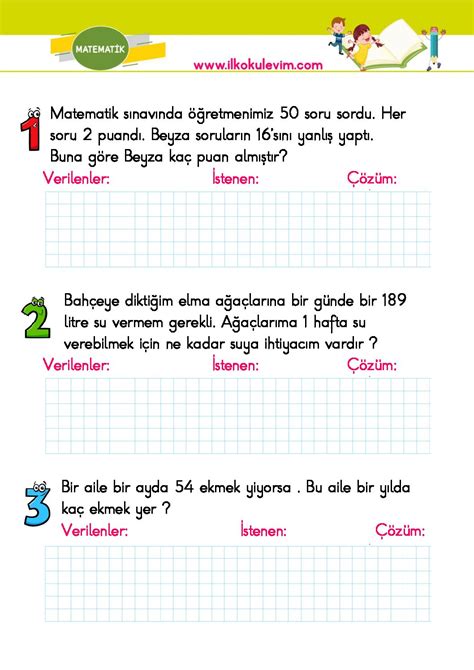 MATEMATİK
www.ilkokulevim.com
1 Matematik sınavında öğretmenimiz 50 soru sordu. Her
soru 2 puandı. Beyza soruların 16'sını yanlış yaptı.
Buna göre Beyza kaç puan almıştır?
Verilenler: İstenen: Çözüm:
2 Bahçeye diktiğim elma ağaçlarına bir günde bir 189
litre su vermem gerekli. Ağaçlarıma 1 hafta su
verebilmek için ne kadar suya ihtiyacım vardır ?
Verilenler: İstenen: Çözüm:
3 Bir aile bir ayda 54 ekmek yiyorsa . Bu aile bir yılda
kaç ekmek yer ?
Verilenler: İstenen: Çözüm: